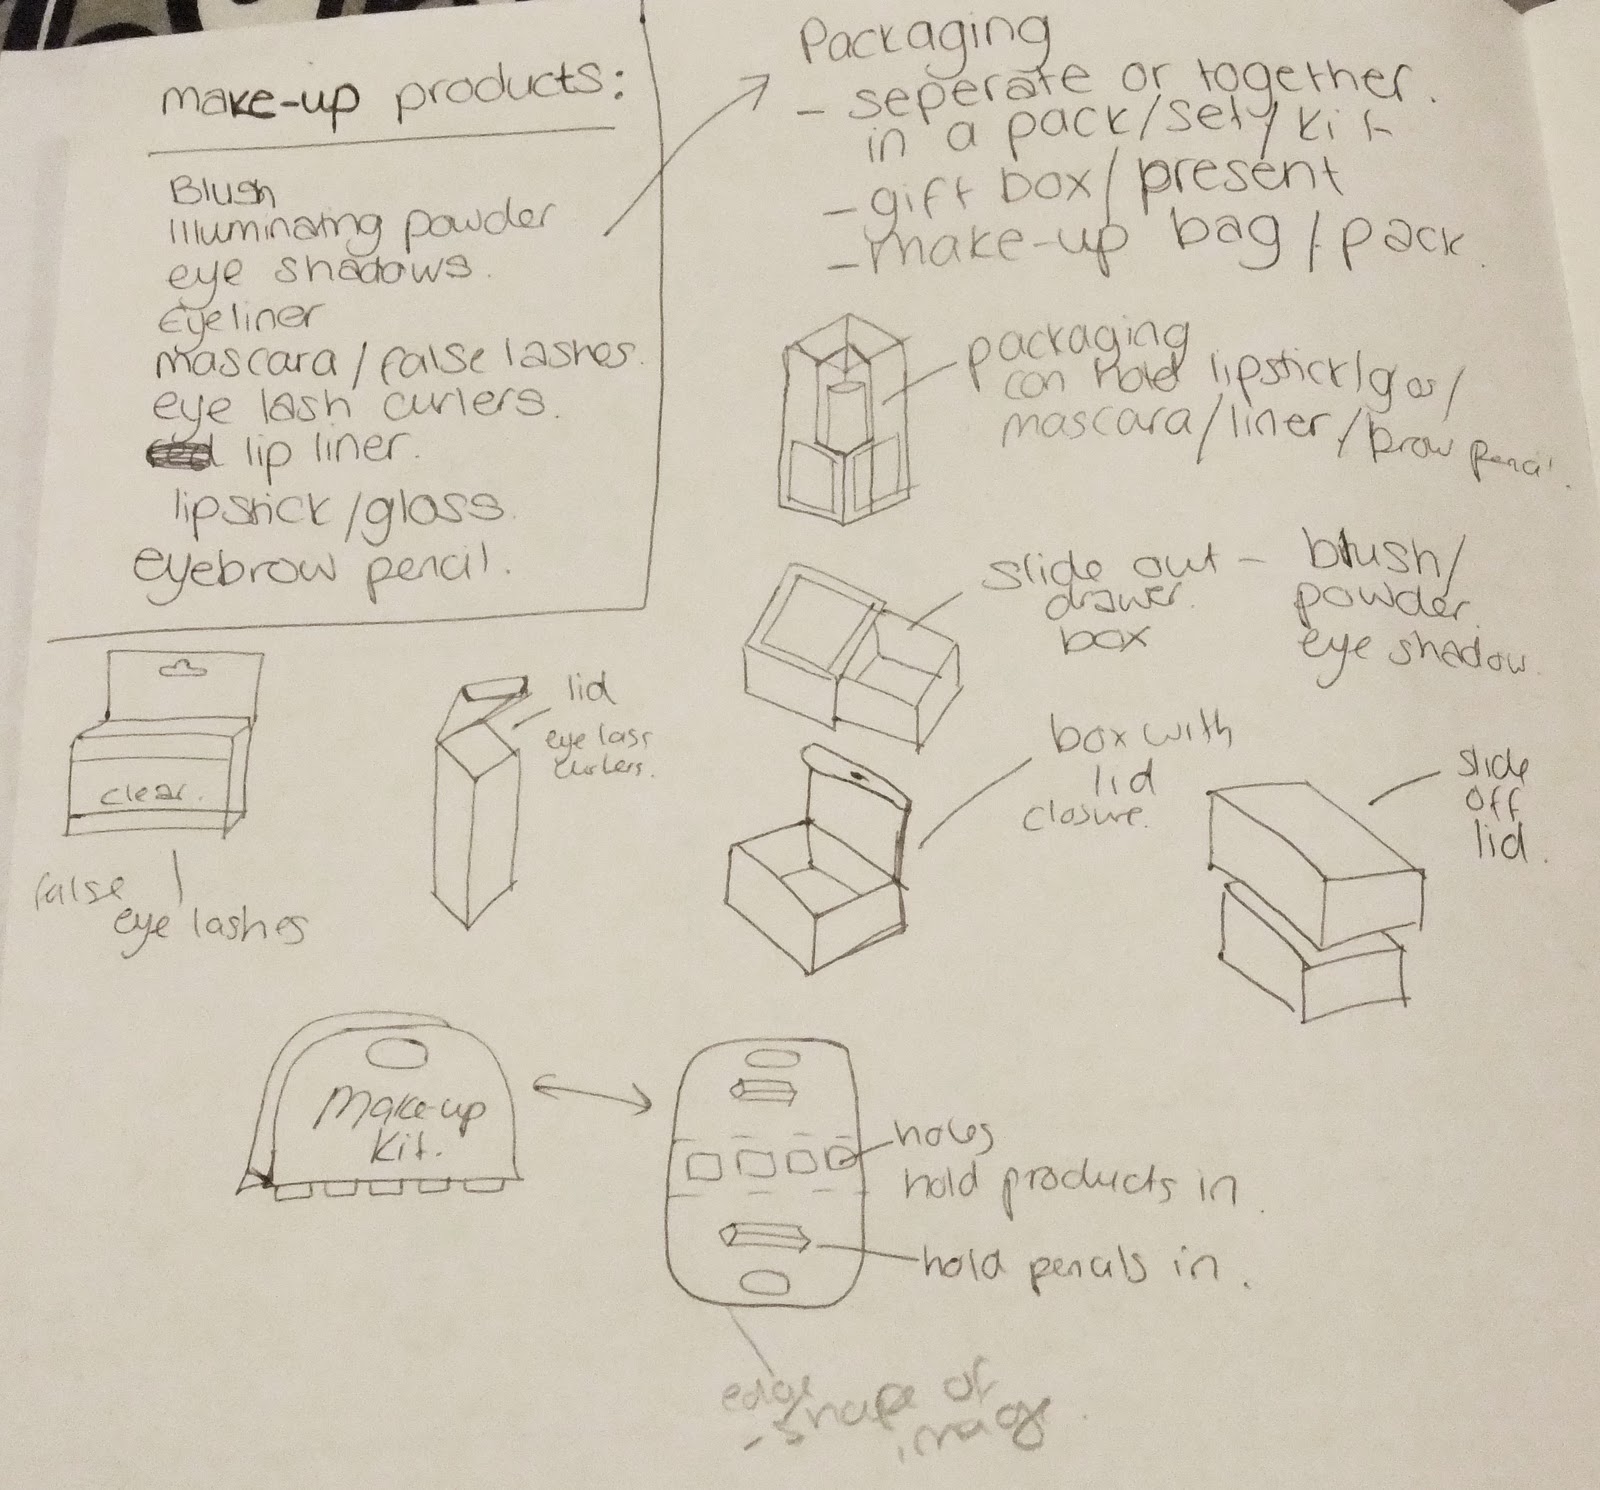 make-up products:
Blush
Illuminating powder
eye shadows.
Eyeliner
mascara / false lashes.
eye lash curlers.
lip liner.
lipstick/gloss.
eyebrow pencil.
Packaging
- seperate or together.
in a pack/set/kit
- gift box/present
- make-up bag/pack.
packaging
can hold lipstick/
mascara/liner/brow pencil.
slide out -
drawer.
box
blush/
powder.
eye shadow.
clear.
false
eye lashes
lid
eye lash
curlers.
box with
lid
closure.
slide
off
lid.
Make-up
Kit.
holes
hold products in.
hold pencils in.
edge
- shape of
image.